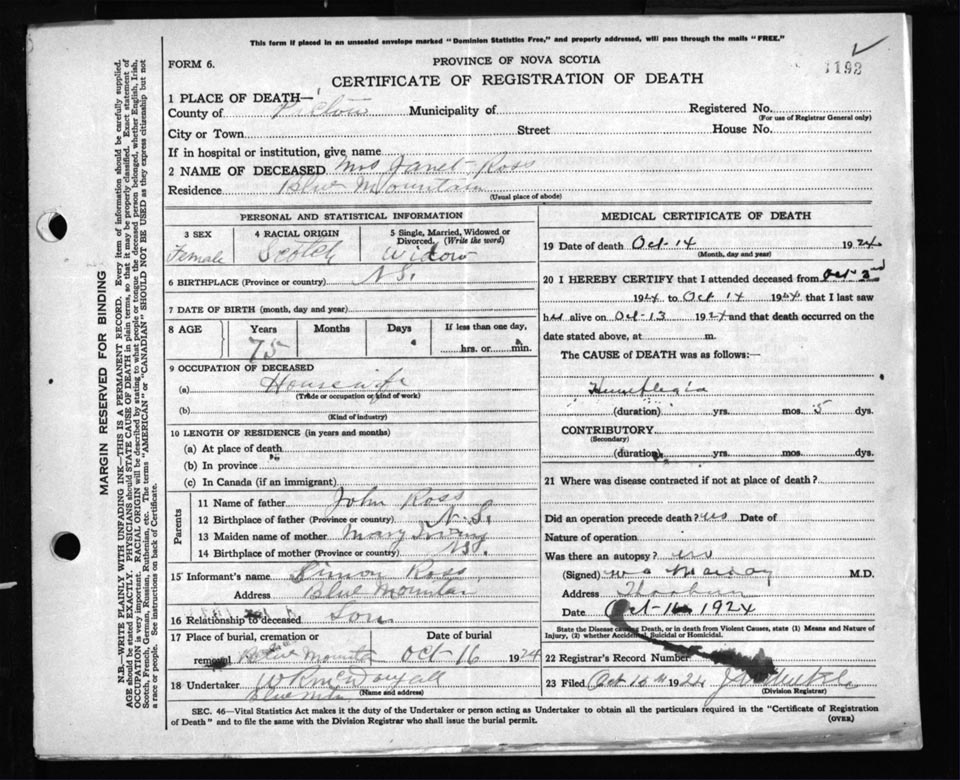 This form if placed in an unsealed envelope marked "Dominion Statistics Free," and properly addressed, will pass through the mails "FREE."
FORM 6.
PROVINCE OF NOVA SCOTIA
1192
CERTIFICATE OF REGISTRATION OF DEATH
1 PLACE OF DEATH—
County of Pictou Municipality of Registered No.
(For use of Registrar General only)
City or Town Street House No.
If in hospital or institution, give name
2 NAME OF DECEASED Mrs Janet Ross
Residence Blue Mountain
(Usual place of abode)
PERSONAL AND STATISTICAL INFORMATION
3 SEX 4 RACIAL ORIGIN 5 Single, Married, Widowed or Divorced. (Write the word)
Female Scotch Widow
6 BIRTHPLACE (Province or country) N.S.
7 DATE OF BIRTH (month, day and year)
8 AGE Years Months Days If less than one day,
75 hrs. or min.
9 OCCUPATION OF DECEASED
(a) Housewife
(Trade or occupation or kind of work)
(b)
(Kind of industry)
10 LENGTH OF RESIDENCE (in years and months)
(a) At place of death
(b) In province
(c) In Canada (if an immigrant)
Parents
11 Name of father John Ross
12 Birthplace of father (Province or country) N.S.
13 Maiden name of mother Mary
14 Birthplace of mother (Province or country) N.S.
15 Informant's name Simon Ross
Address Blue Mountain
16 Relationship to deceased Son
17 Place of burial, cremation or Date of burial
removal Blue Mountn Oct 16 1924
18 Undertaker
(Name and address)
Blue Mtn
MEDICAL CERTIFICATE OF DEATH
19 Date of death Oct-14 1924
(Month, day and year)
20 I HEREBY CERTIFY that I attended deceased from Oct 2nd
1924 to Oct 14 1924 that I last saw
her alive on Oct-13 1924 and that death occurred on the
date stated above, at m.
The CAUSE of DEATH was as follows:—
Hemiplegia
(duration) yrs. mos. 5 dys.
CONTRIBUTORY
(Secondary)
(duration) yrs. mos. dys.
21 Where was disease contracted if not at place of death?
Did an operation precede death? no Date of
Nature of operation
Was there an autopsy? no
(Signed) M.D.
Address Thorburn
Date Oct-16 1924
State the Disease causing Death, or in death from Violent Causes, state (1) Means and Nature of
Injury, (2) whether Accidental, Suicidal or Homicidal.
22 Registrar's Record Number
23 Filed Oct 16 1924
(Division Registrar)
SEC. 46—Vital Statistics Act makes it the duty of the Undertaker or person acting as Undertaker to obtain all the particulars required in the "Certificate of Registration
of Death" and to file the same with the Division Registrar who shall issue the burial permit.
(OVER)
MARGIN RESERVED FOR BINDING
N.B.—WRITE PLAINLY WITH UNFADING INK—THIS IS A PERMANENT RECORD. Every item of information should be carefully supplied.
AGE should be stated EXACTLY. PHYSICIANS should STATE CAUSE OF DEATH in plain terms, so that it may be properly classified. Exact statement of
OCCUPATION is very important. RACIAL ORIGIN will be described by stating to what people or tongue the deceased person belonged, whether English, Irish,
Scotch, French, German, Russian, Ruthenian, etc. The terms "AMERICAN" or "CANADIAN" SHOULD NOT BE USED as they express citizenship but not
a race or people. See instructions on back of Certificate.